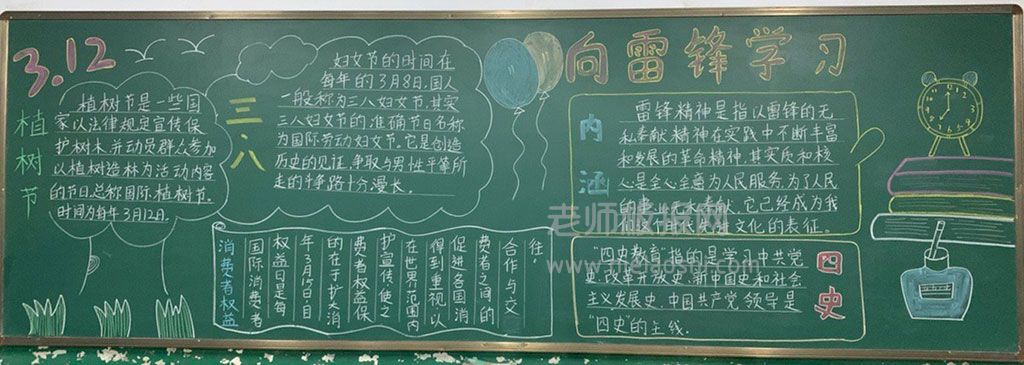 3.12
植树节
植树节是一些国
家以法律规定宣传保
护树木,并动员群众参加
以植树造林为活动内容
的节日总称国际植树节。
时间为每年3月12日。
三·八
妇女节的时间在
每年的3月8日.国人
一般称为三八妇女节,其实
三八妇女节的准确节日名称
为国际劳动妇女节。它是创造
历史的见证,争取与男性平等所
走的斗争路十分漫长。
消费者权益
国际消费者
权益日是每
年3月15日目
的在于扩大消
费者权益保
护宣传使之
在世界范围内
得到重视以
促进各国消
费者之间的
合作与交
往,
向雷锋学习
内涵
雷锋精神是指以雷锋的无
私奉献精神在实践中不断丰富
和发展的革命精神,其实质和核
心是全心全意为人民服务,为了人民
的事业无私奉献,它已经成为我
文化的表征。
四史
“四史教育”指的是学习中共党
史,改革开放史,新中国史和社会
主义发展史,中国共产党领导是
“四史”的主线.
老师板报网